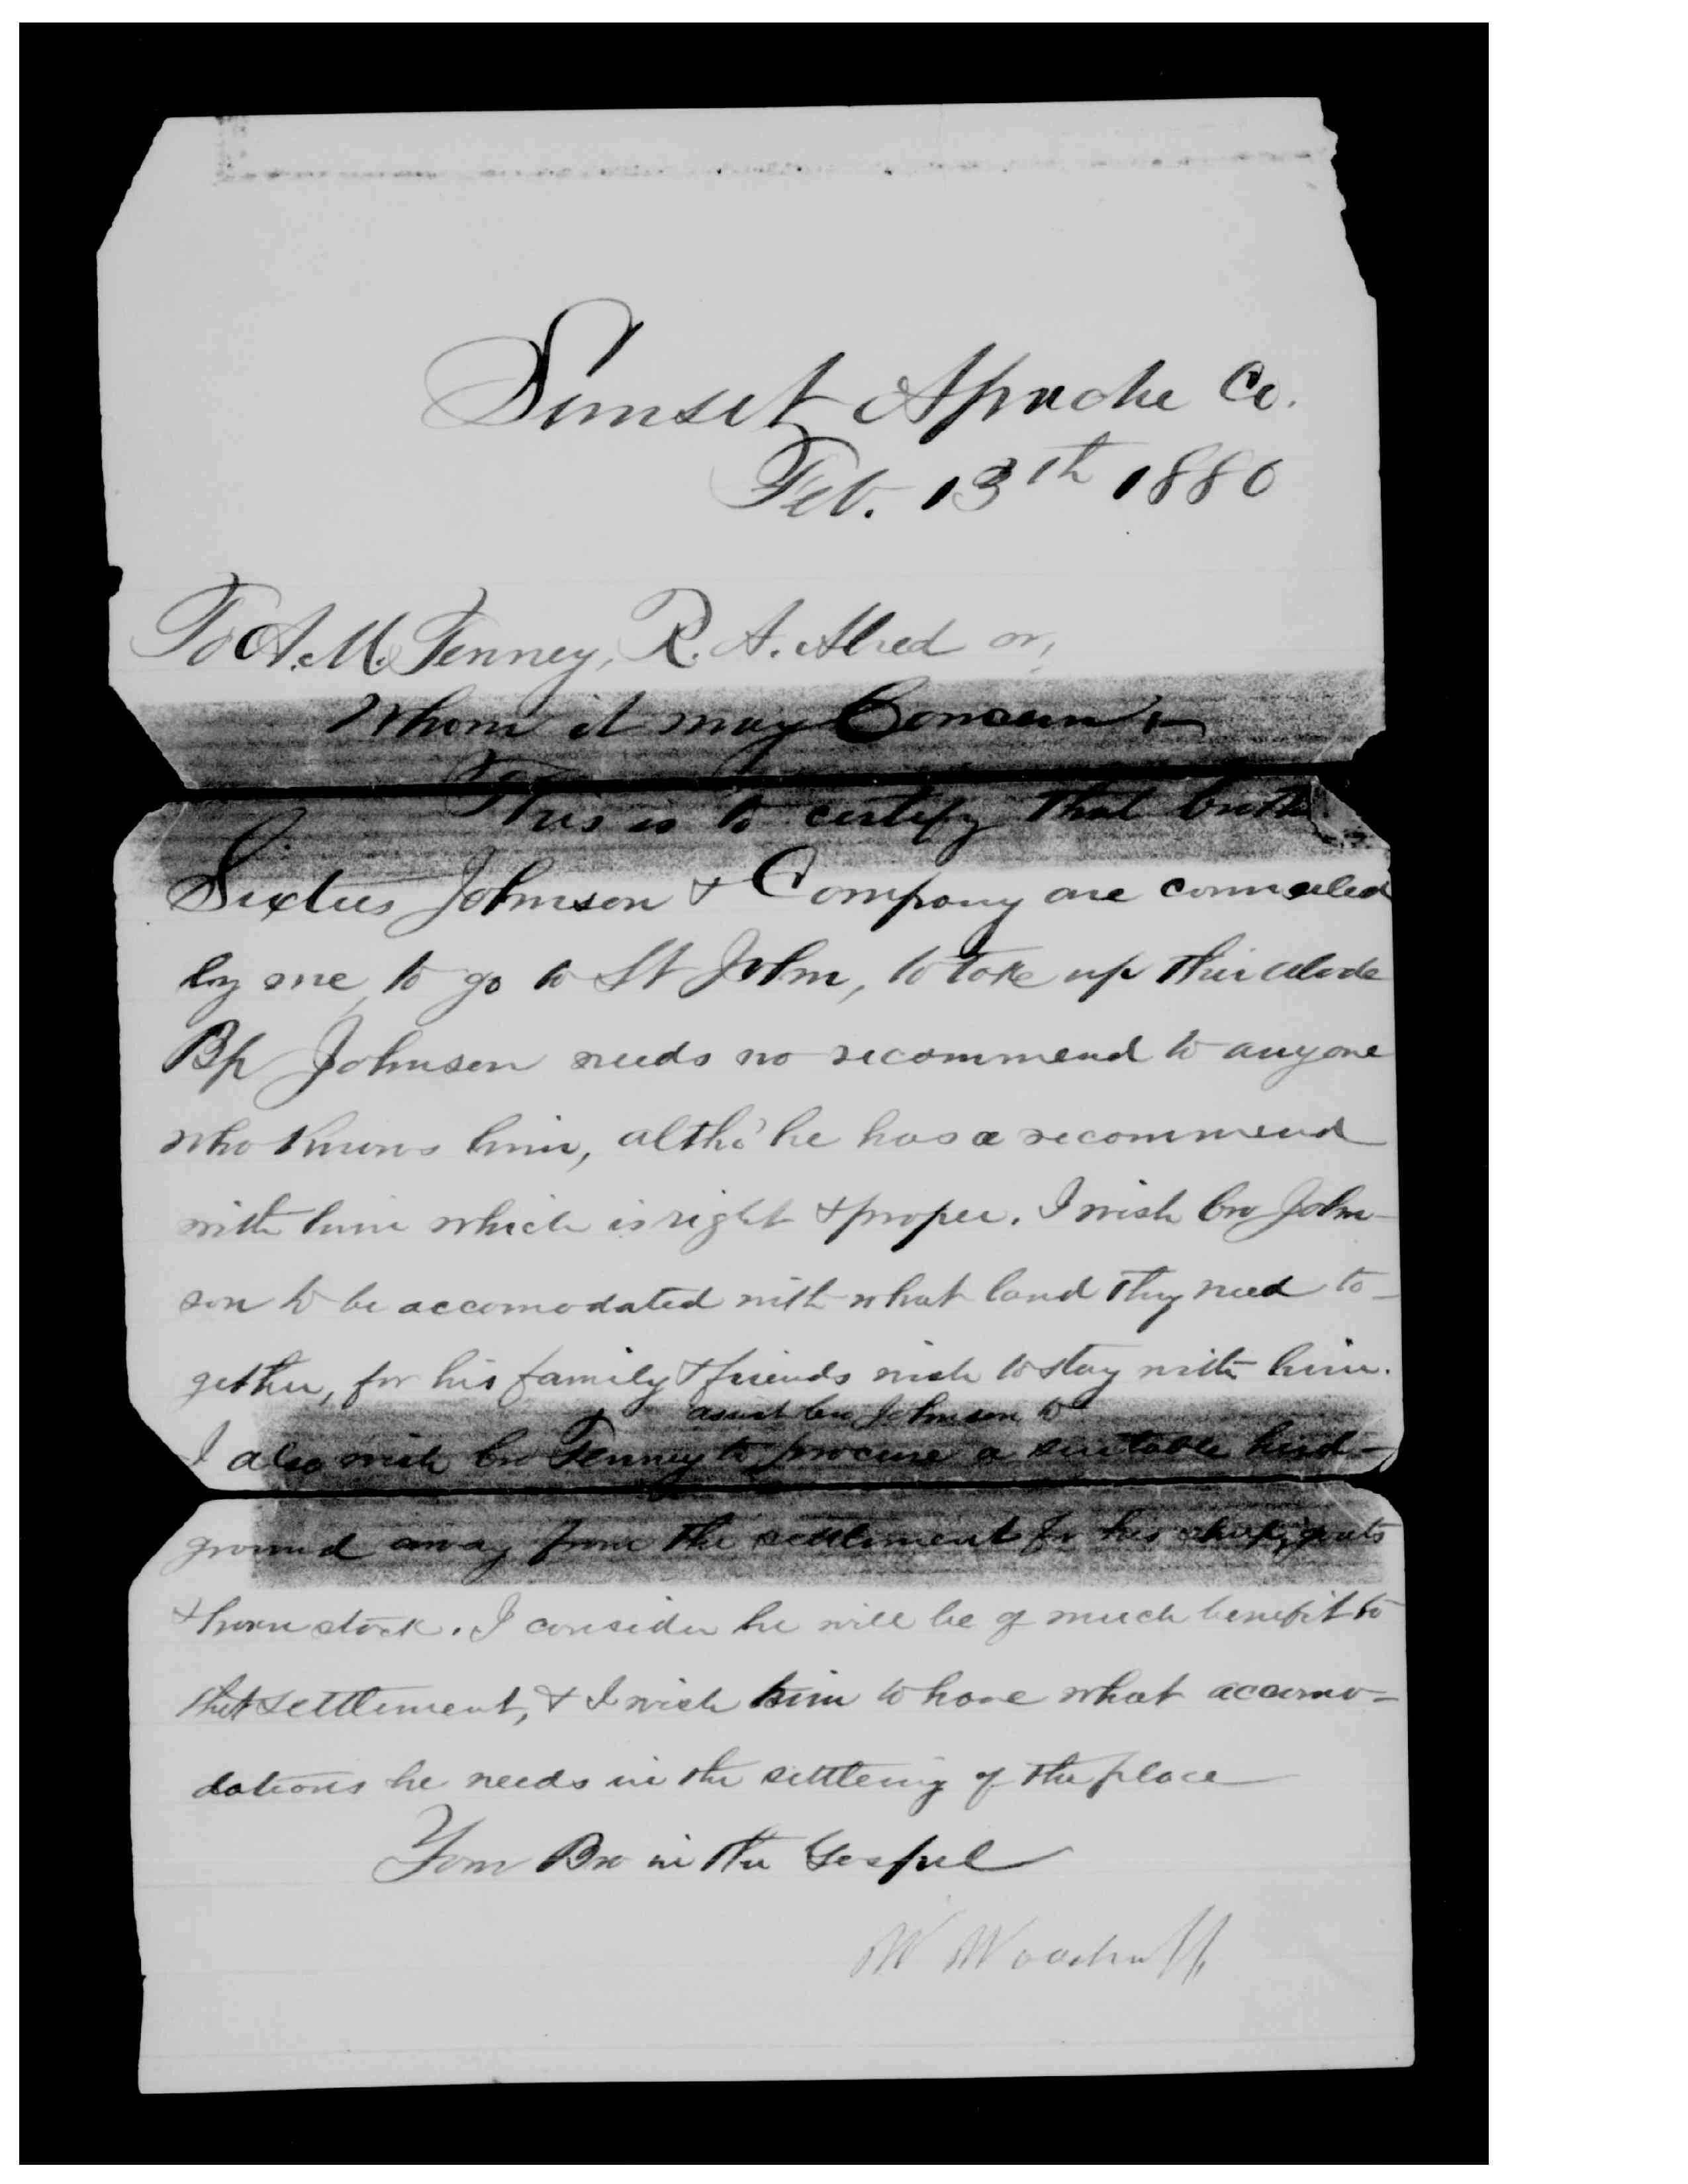 Sunset Apache Co.
Feb. 13th 1880
To A. M. Tenney, R. A. Alred or,
Whom it may Concern,—
This is to certify that broth
Sixtus Johnson & Company are counseled
by me, to go to St John, to take up their abode
Bp Johnson needs no recommend to anyone
who knows him, altho' he has a recommend
with him which is right & proper. I wish bro John-
son to be accomodated with what land they need to-
gether, for his family & friends wish to stay with him.
assist bro Johnson to
I also wish bro Tenney to procure a suitable herd-
ground away from the settlement for his sheep, goats
& horn stock. I consider he will be of much benefit to
that settlement, & I wish him to have what accomo-
dations he needs in the settleing of the place
Your Bro in the Gospel
W Woodruff